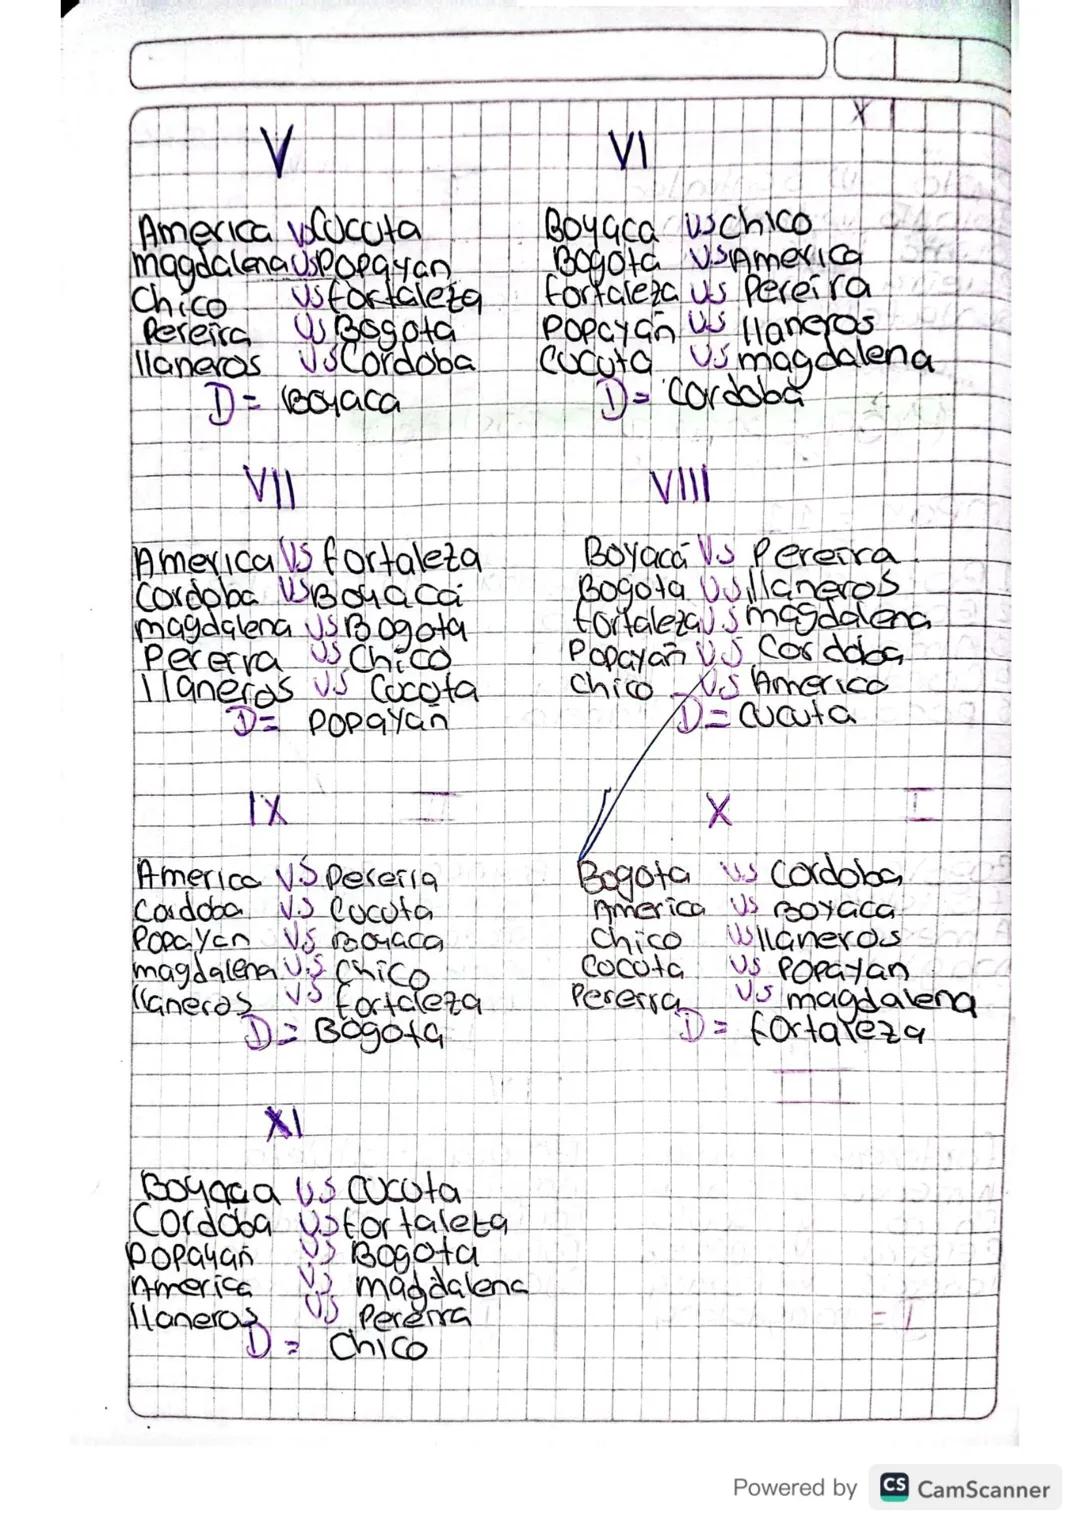 V
America vs Cucuta
magdalena vs Popayan
Chico vs fortaleza
Pereira vs Bogota
llaneros vs Cordoba
D= Boyaca
VI
Boyaca vs chico
Bogota vs America
fortaleza vs Pereira
Popayan vs llaneros
Cucuta vs magdalena
D= Cordoba
VII
America vs fortaleza
Cordoba vs Boyaca
magdalena vs Bogota
Pereira vs Chico
llaneros vs Cucuta
D= Popayan
VIII
Boyacá vs Pereira
Bogota vs llaneros
fortaleza vs magdalena
Popayan vs Cordoba
Chico vs America
D= Cucuta
IX
America VS Pereira
Cordoba V.S Cucuta
Popayan VS Boyaca
magdalena V.S Chico
llaneros VS fortaleza
D= Bogota
X
Bogota vs Cordoba
America vs Boyaca
Chico vs llaneros
Cocota vs Popayan
Pereira vs magdalena
D= fortaleza
XI
Boyaca vs Cucuta
Cordoba vs fortaleza
Popayan vs Bogota
America vs magdalena
llaneros vs Pereira
D= Chico
Powered by CS CamScanner